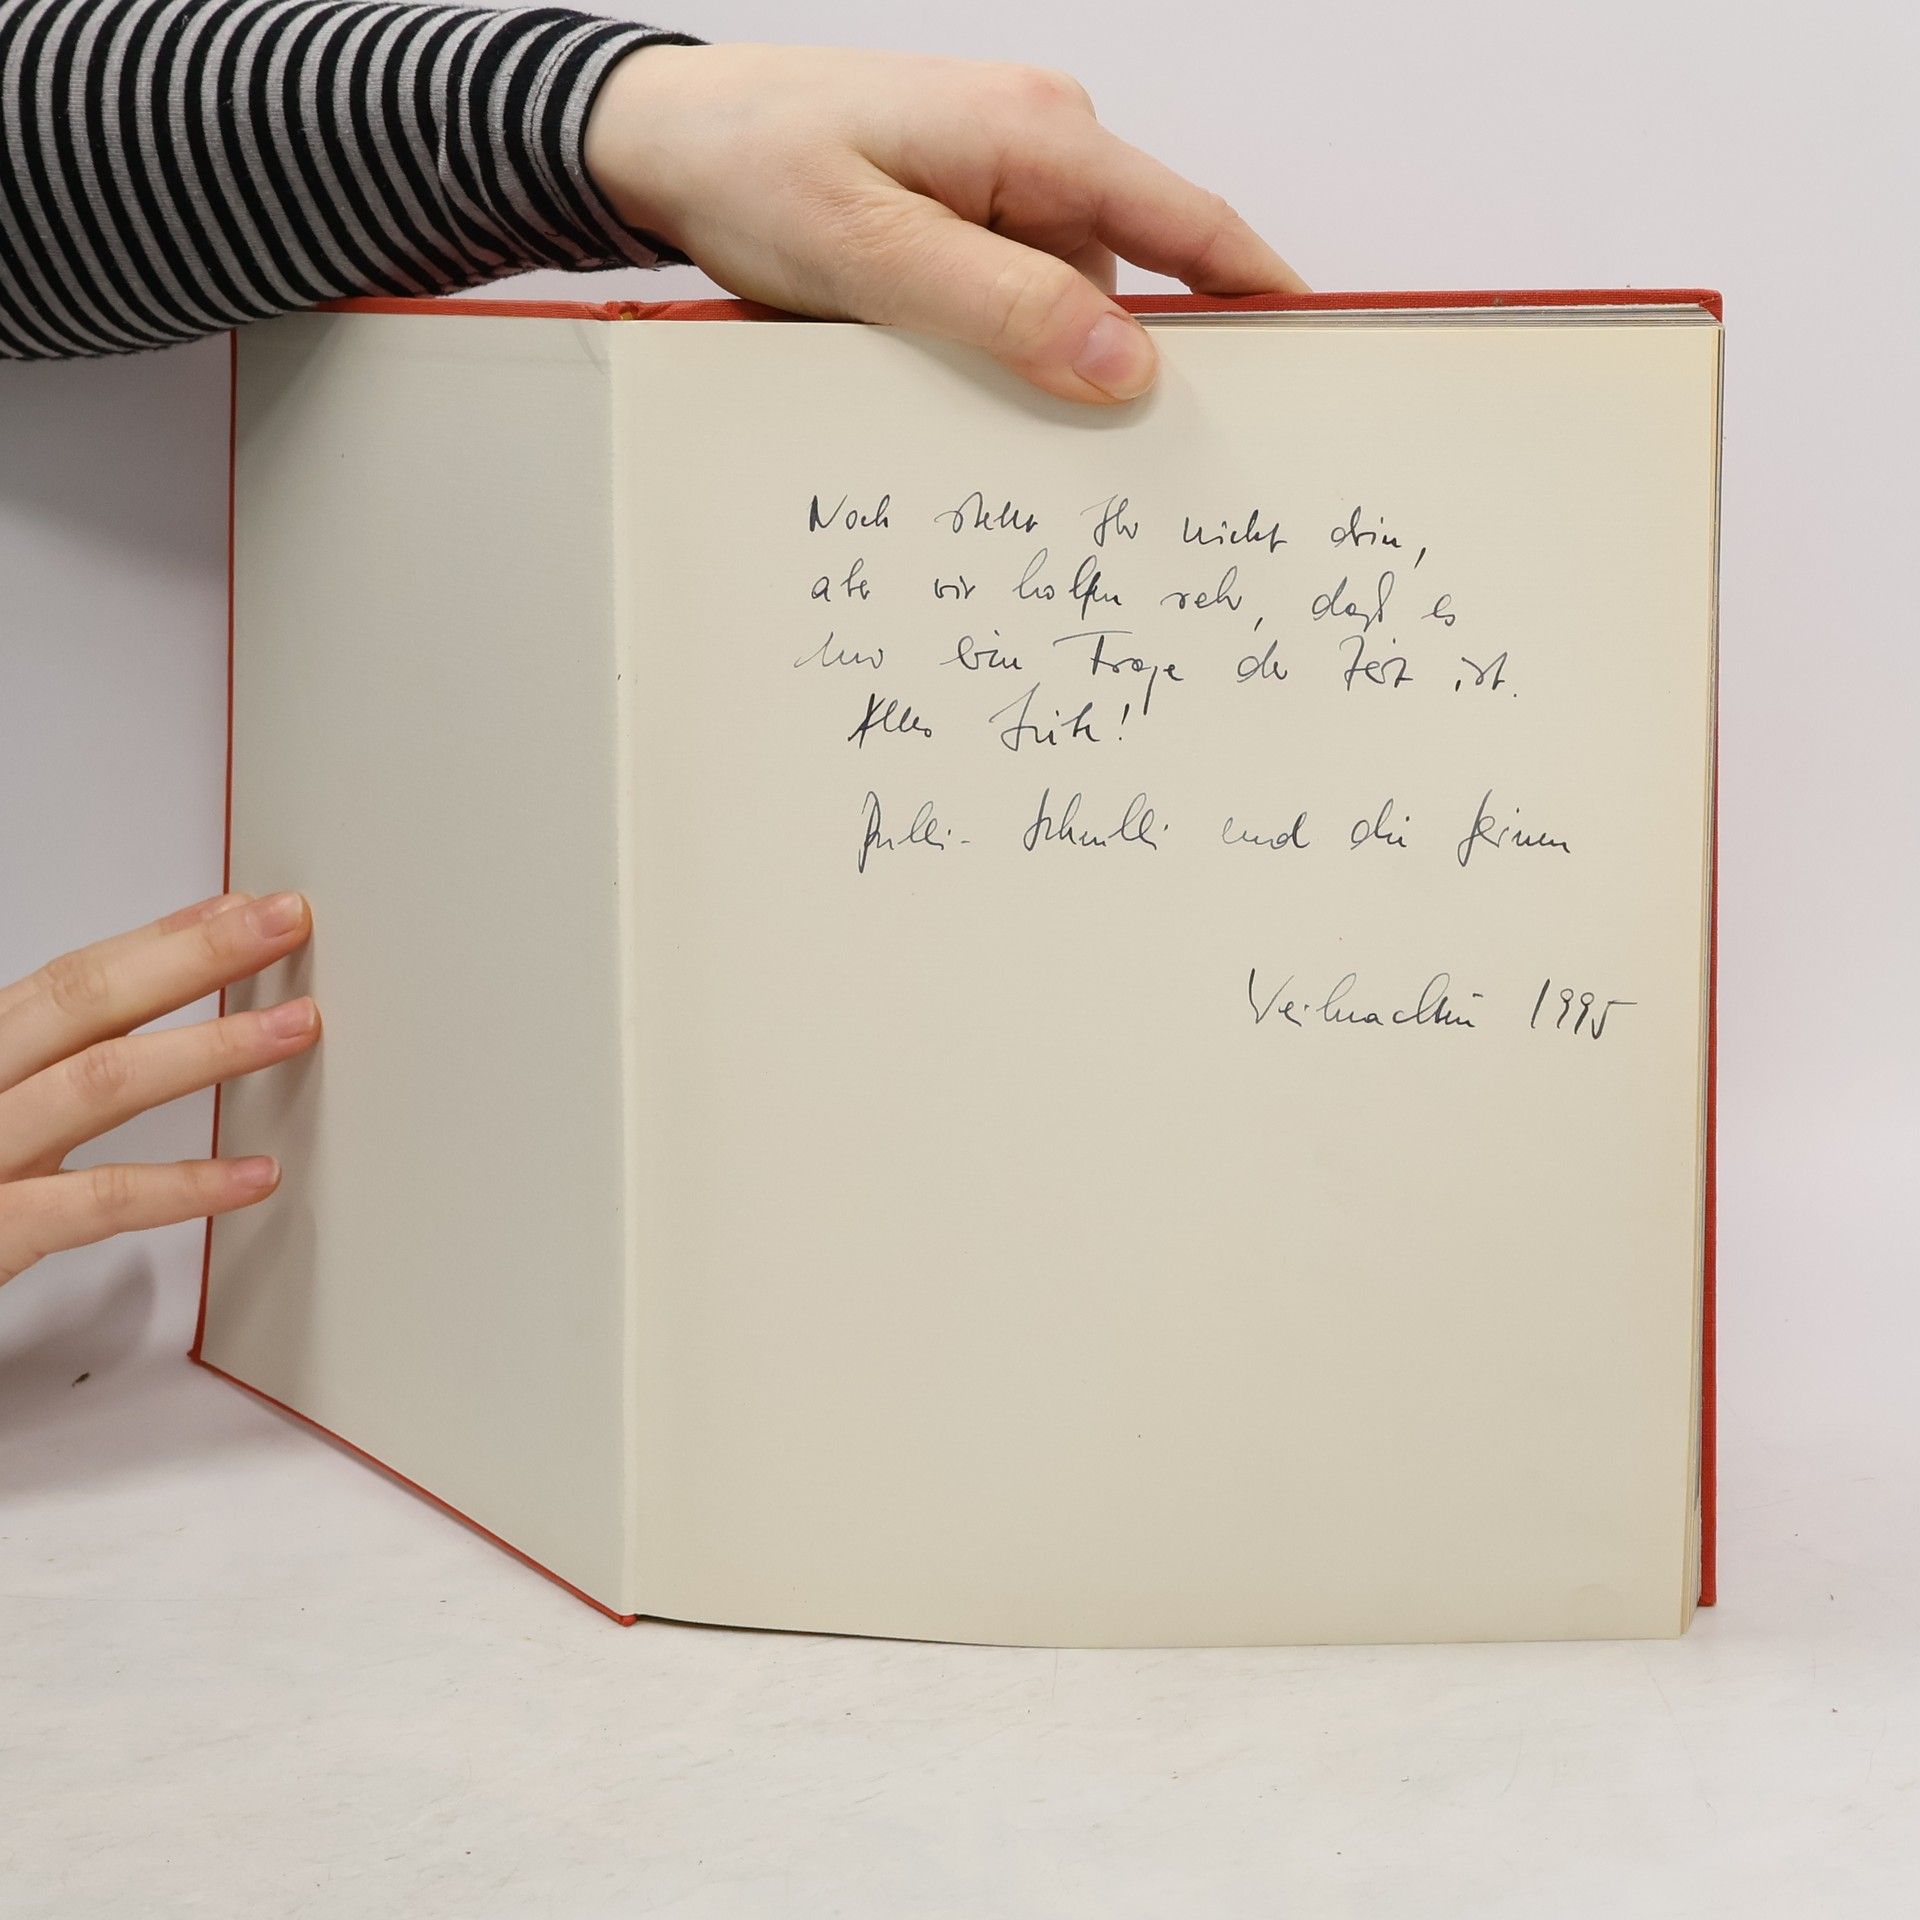 Noch steht Ihr nicht drin,
aber wir hoffen sehr, daß es
nur eine Frage der Zeit ist.
Alles Gute!
und die
Weihnachten 1995